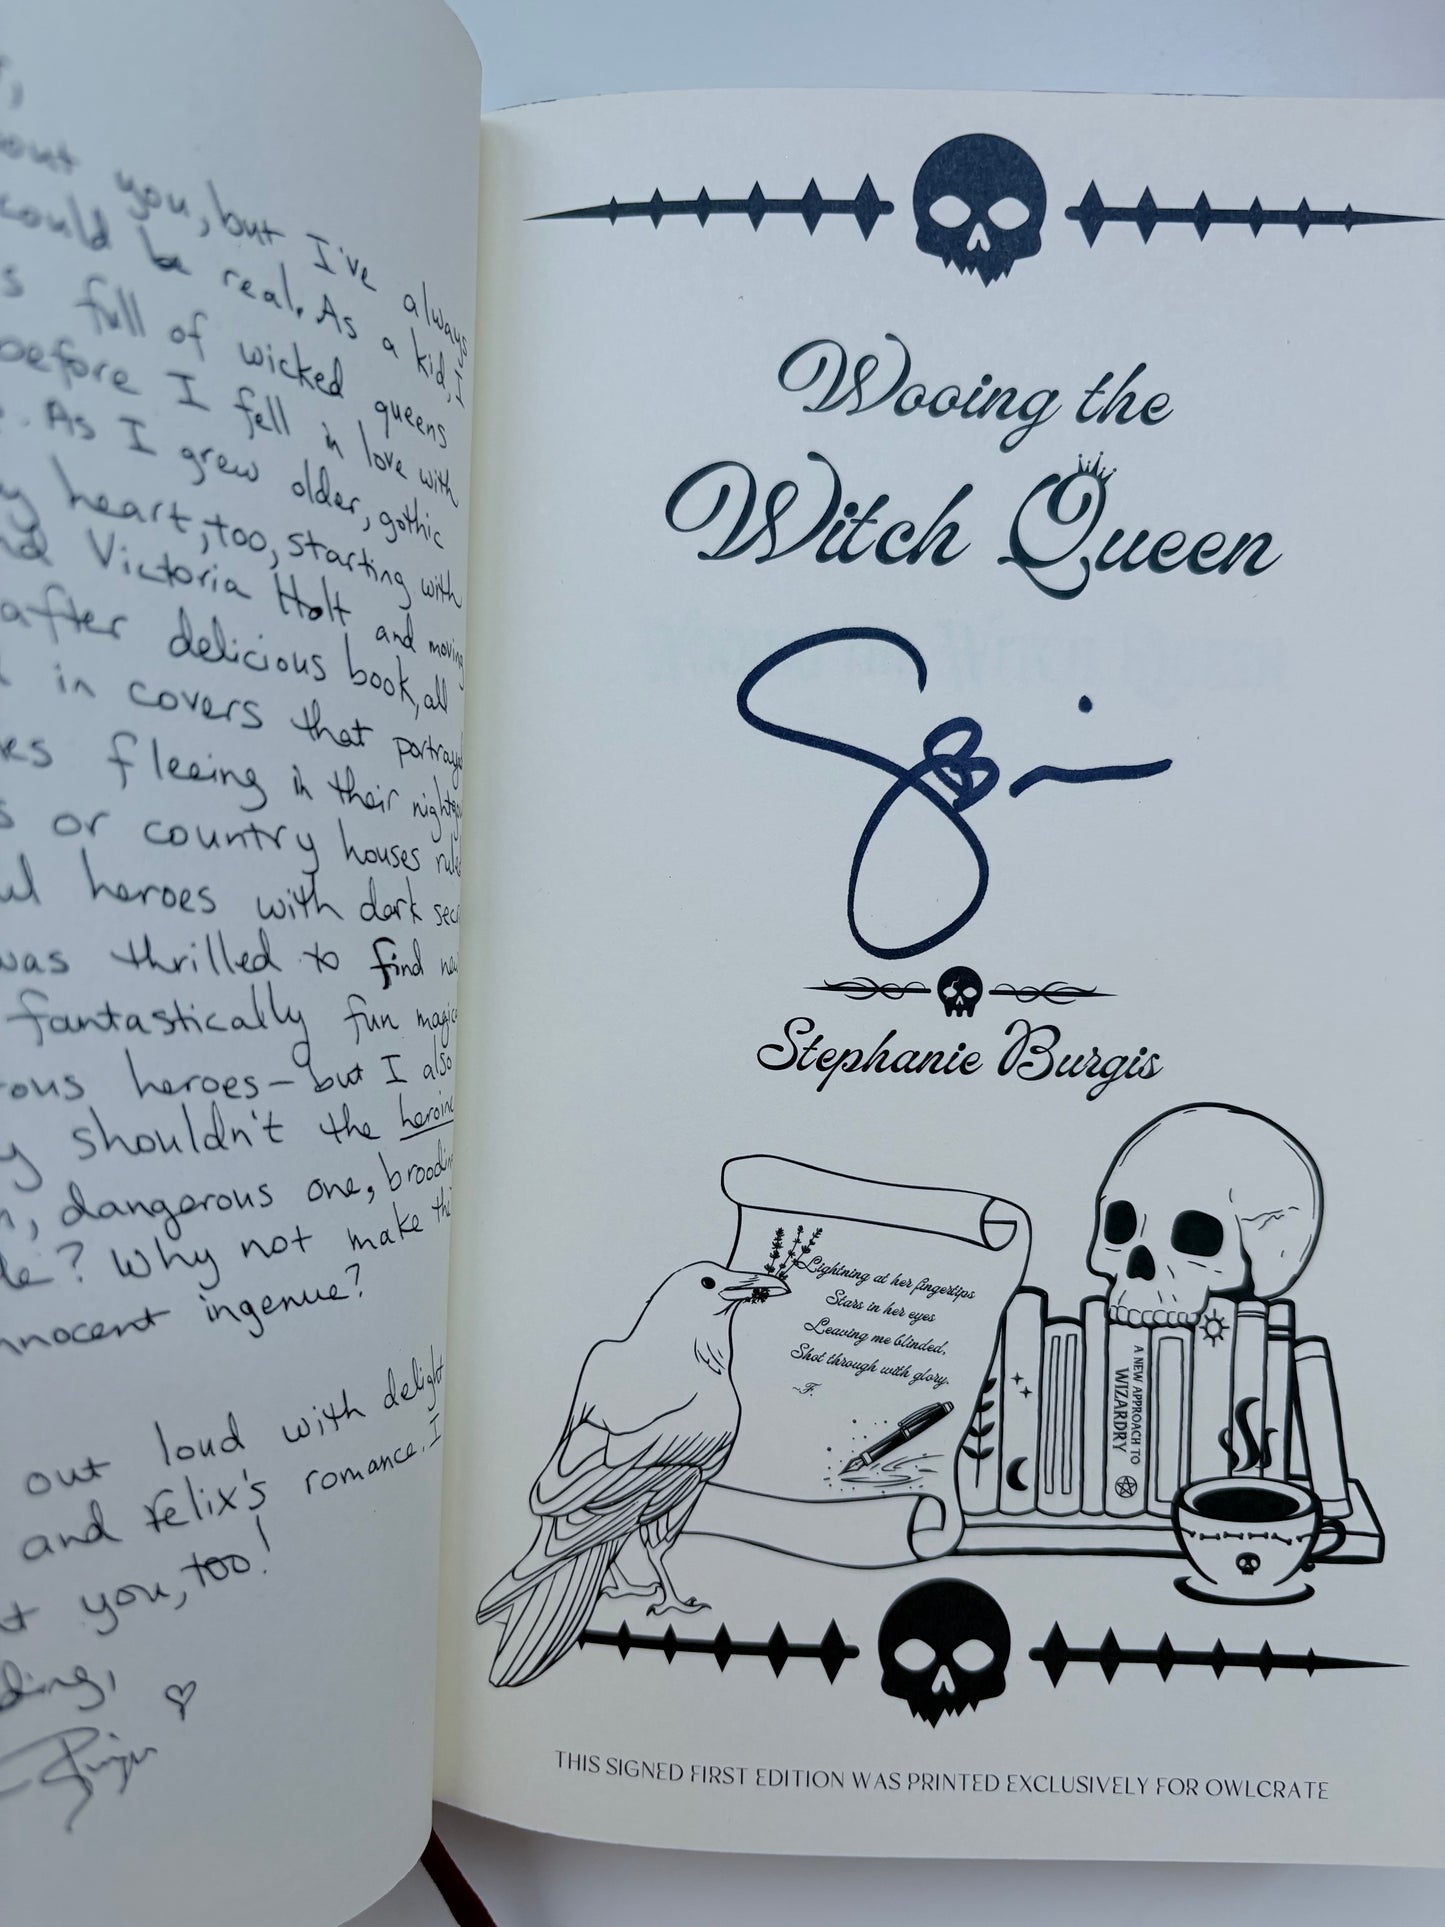 out you, but I've always
could be real. As a kid, I
s full of wicked queens
before I fell in love with
. As I grew older, gothic
y heart, too, starting with
nd Victoria Holt and moving
after delicious book, all
in covers that portrayed
es fleeing in their nightgo
s or country houses rule
ul heroes with dark sec
was thrilled to find new
fantastically fun magic
rous heroes—but I also
y shouldn't the heroine
n, dangerous one, broodin
le? Why not make the
nnocent ingenue?
out loud with delight
and Felix's romance. I
t you, too!
ding,
Wooing the
Witch Queen
Stephanie Burgis
Lightning at her fingertips
Stars in her eyes
Leaving me blinded,
Shot through with glory.
~F.
A NEW APPROACH TO
WIZARDRY
THIS SIGNED FIRST EDITION WAS PRINTED EXCLUSIVELY FOR OWLCRATE